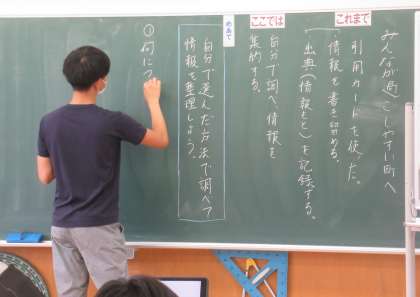 みんなが過ごしやすい町へ
これまで
引用カードを使った。
・情報を書き留める。
・出典(情報もと)を記録する。
ここでは
自分で調べ、情報を
集約する。
めあて
自分で選んだ方法で調べて
情報を整理しよう。
①何につ